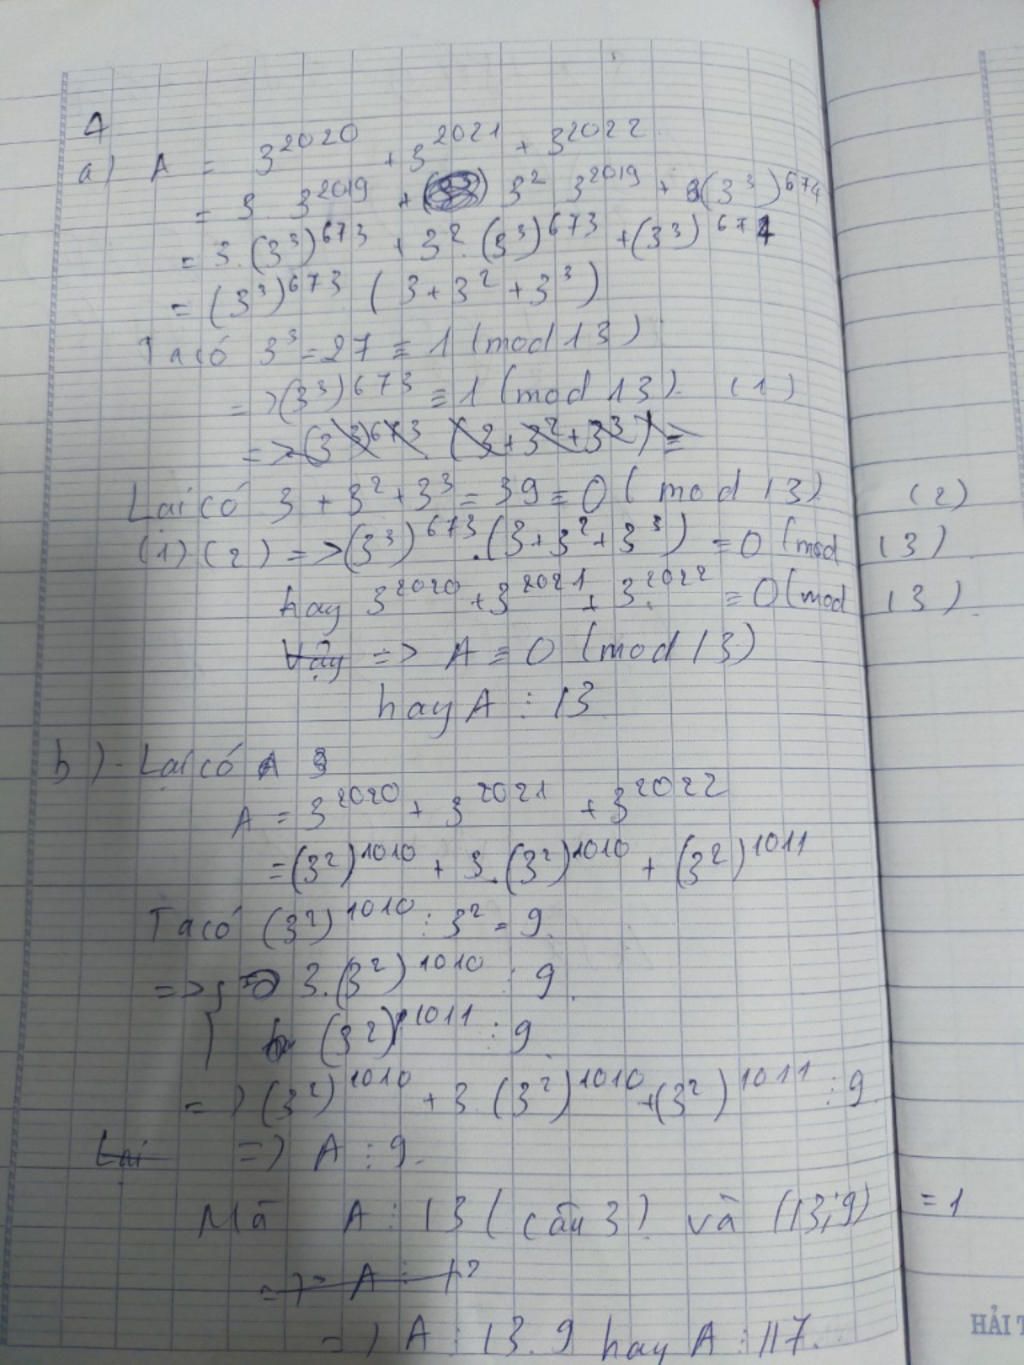 4
a) A = 3^2020 + 3^2021 + 3^2022
= 3. 3^2019 + 3^2 3^2019 + (3^3)^674
= 3.(3^3)^673 + 3^2.(3^3)^673 + (3^3)^674
= (3^3)^673 (3 + 3^2 + 3^3)
Ta có 3^3 = 27 ≡ 1 (mod 13)
=> (3^3)^673 ≡ 1 (mod 13). (1)
=> (3^3)^673 (3 + 3^2 + 3^3) ≡
Lại có 3 + 3^2 + 3^3 = 39 ≡ 0 (mod 13) (2)
(1) (2) => (3^3)^673.(3 + 3^2 + 3^3) ≡ 0 (mod 13)
hay 3^2020 + 3^2021 + 3^2022 ≡ 0 (mod 13)
Vậy => A ≡ 0 (mod 13)
hay A ⋮ 13
b) - Lại có A
A = 3^2020 + 3^2021 + 3^2022
= (3^2)^1010 + 3.(3^2)^1010 + (3^2)^1011
Ta có (3^2)^1010 ⋮ 3^2 = 9.
=> { 3.(3^2)^1010 ⋮ 9.
(3^2)^1011 ⋮ 9.
=> (3^2)^1010 + 3.(3^2)^1010 + (3^2)^1011 ⋮ 9.
Lại => A ⋮ 9.
Mà A ⋮ 13 (câu 3) và (13;9) = 1
=> A ⋮ 1
=> A ⋮ 13.9 hay A ⋮ 117.
HẢI T